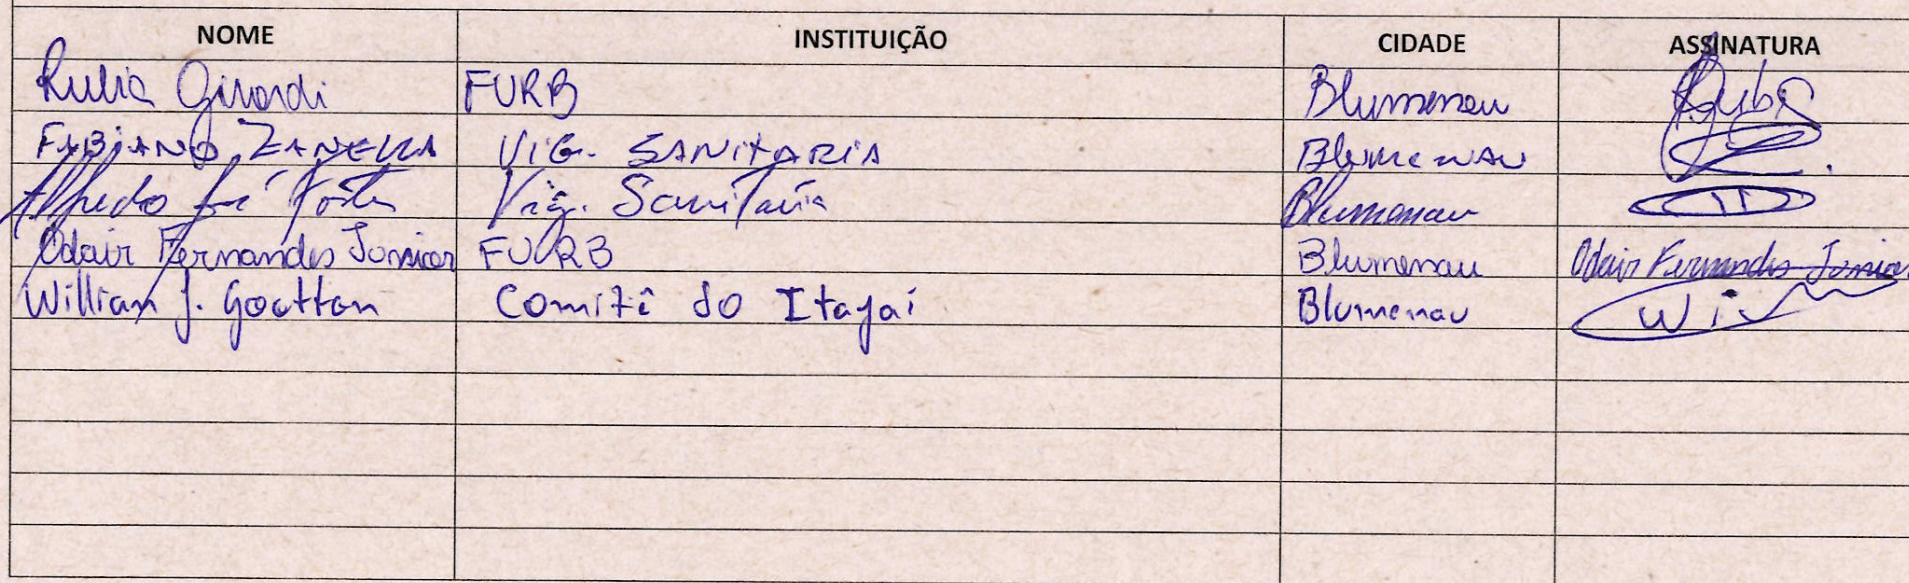 NOME INSTITUIÇÃO CIDADE ASSINATURA
Girardi FURB Blumenau
FABIANO ZANELLA VIG. SANITARIA Blumenau
Alfredo José Vig. Sanitaria Blumenau
Odair Fernandes Junior FURB Blumenau Odair Fernandes Junior
William J. Goetten Comitê do Itajaí Blumenau Wi